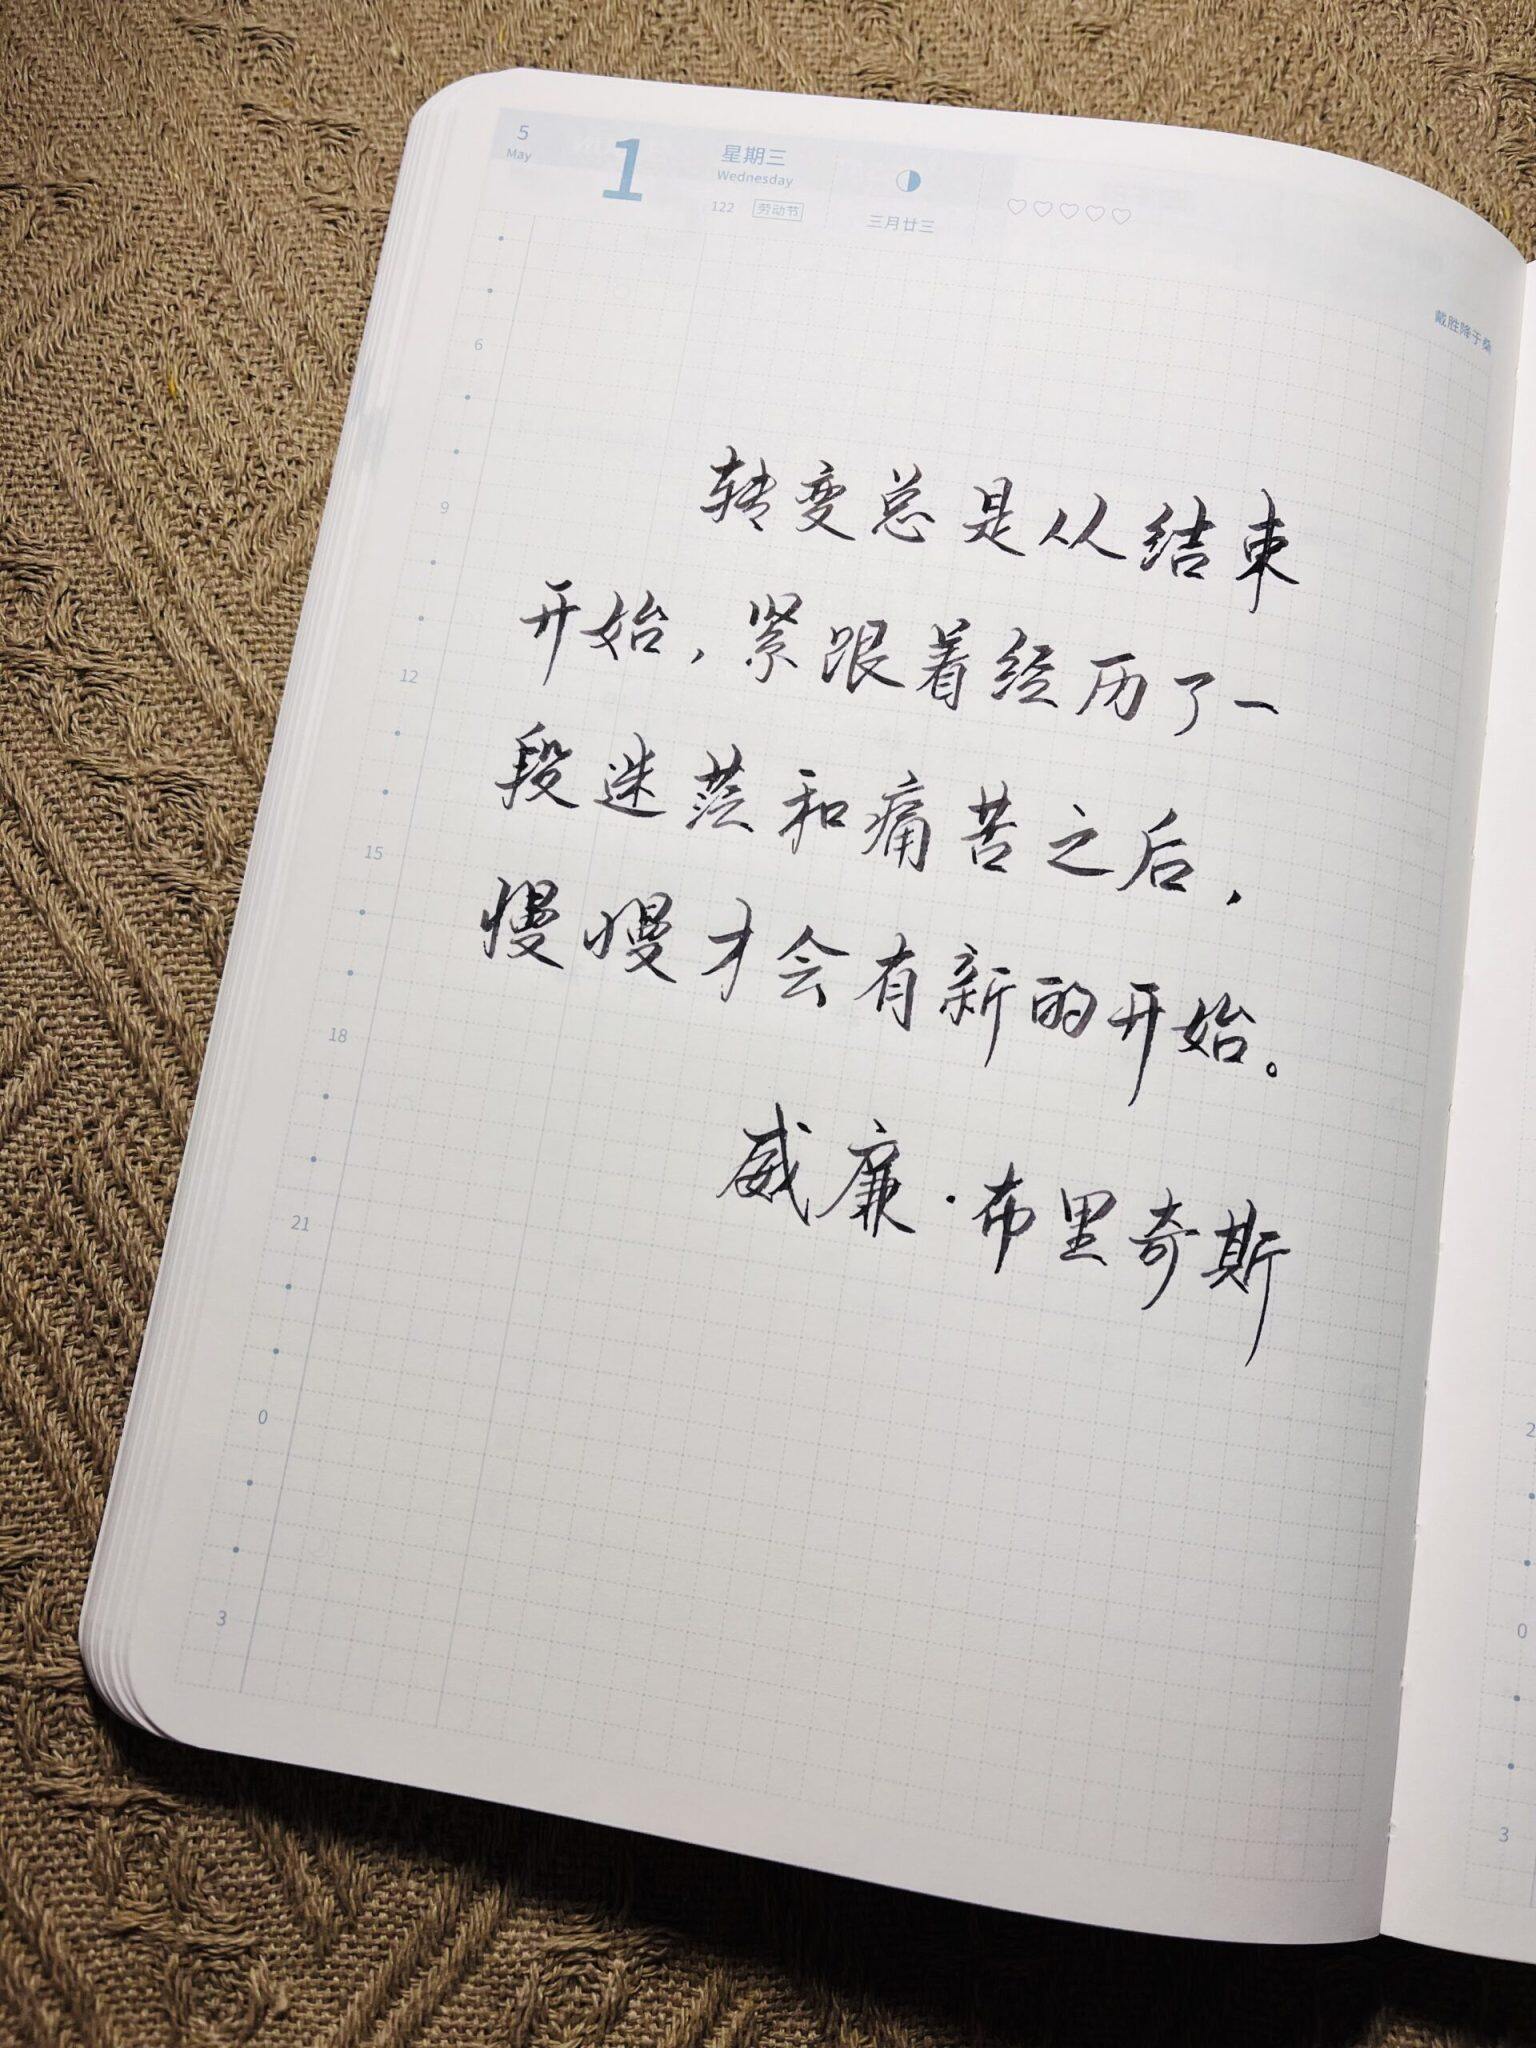 5
May
1
星期三
Wednesday
122 劳动节
三月廿三
戴胜降于桑
转变总是从结束
开始，紧跟着经历了一
段迷茫和痛苦之后，
慢慢才会有新的开始。
威廉·布里奇斯
6
9
12
15
18
21
0
3
2
0
3